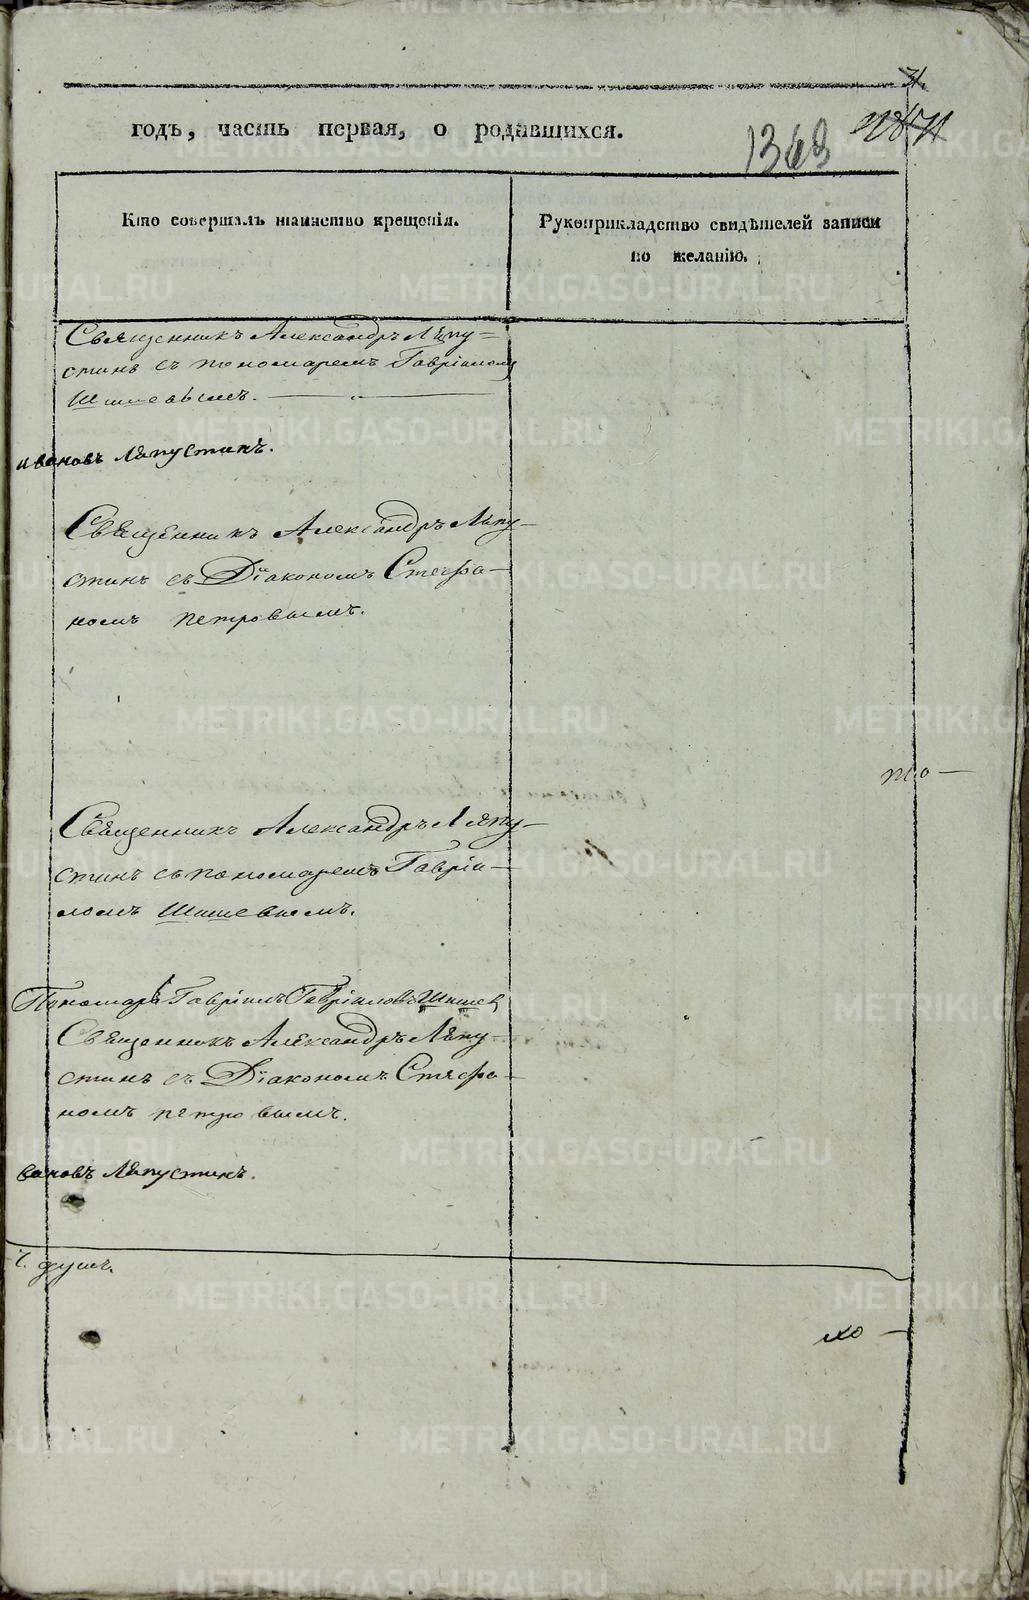 31.
годъ, часть первая, о родившихся.
1369
Кто совершалъ таинство крещенія.
Рукоприкладство свидѣтелей записи
по желанію.
Священникъ Александръ Ляпу-
стинъ съ пономаремъ Гавріиломъ
Шишевымъ.
ивановъ Ляпустинъ.
Священникъ Александръ Ляпу-
стинъ съ Діакономъ Стефа-
номъ петровымъ.
Священникъ Александръ Ляпу-
стинъ съ пономаремъ Гавріи-
ломъ Шишевымъ.
Пономарь Гавріилъ Гавріиловъ Шишев
Священникъ Александръ Ляпу-
стинъ съ Діакономъ Стефа-
номъ петровымъ.
вановъ Ляпустинъ.
душъ.
METRIKI.GASO-URAL.RU